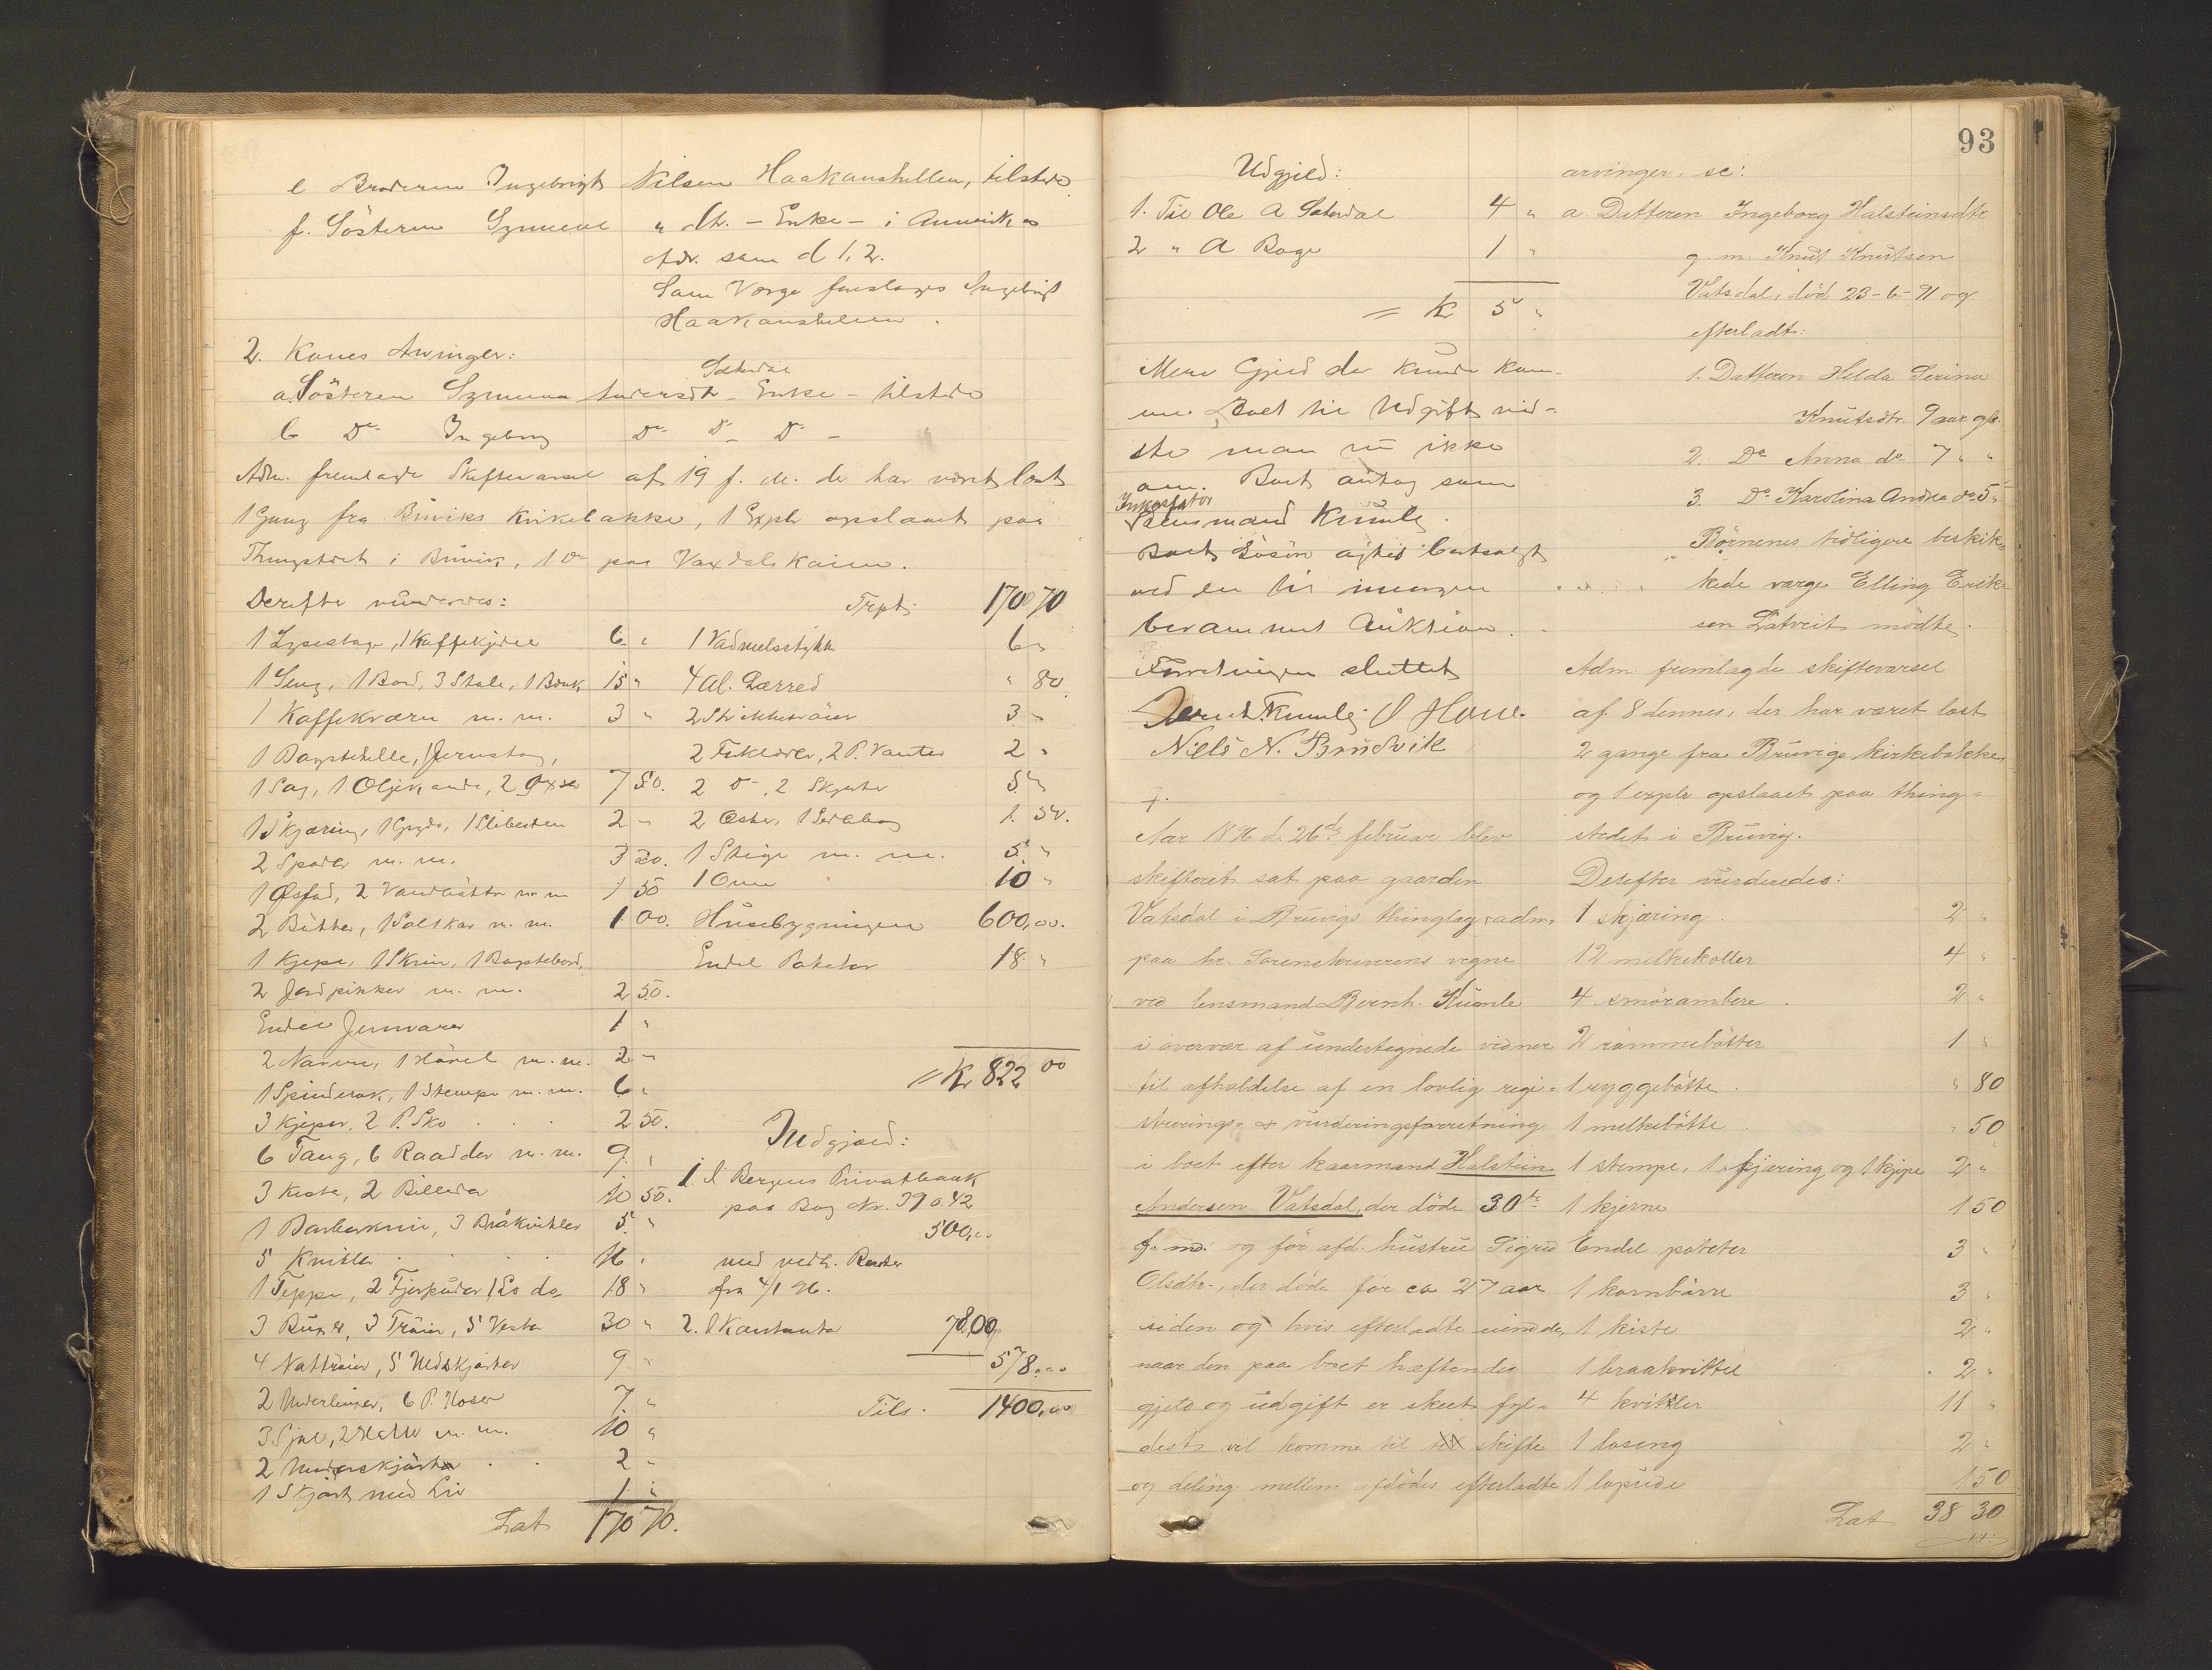 e Broderen Ingebrigt Nilsen Haakanshellen, tilstede
f. Søsteren Synneve " dtr. - Enke - i Amerika
Adr. som d 1, 2.
Som Verge foreslages Ingebrigt
Haakanshellen.
2. Kones Arvinger:
a. Søsteren Synneva Andersdtr Sæterdal - Enke - tilstede
b Do Ingeborg Do Do - Do -
Adm. fremlagde Skiftevarsel af 19 f. M. der har været læst
1 Gang fra Bruviks Kirkebakke, 1 Expl. opslaaet paa
Thingstedet i Bruvik, 1 do paa Vaxdals Kaien.
Derefter vurderedes:
1 Lysestage, 1 Kaffekjedel 6 "
1 Seng, 1 Bord, 3 Stole, 1 Bænk 15 "
1 Kaffekværn m. m. 3 "
1 Bagstehelle, 1 Jernstang,
1 Sag, 1 Oljekande, 2 Øxer 7 50.
1 Skjæring, 1 Gryde, 1 Slibesten 2 "
2 Spader m. m. 3 20.
1 Øsfad, 2 Vandbøtter m. m 1 50
2 Bøtter, 1 Saltkar m. m. 1 00.
1 Kjepe, 1 Skrin, 1 Bagstebord,
2 Jordpikker m. m. 2 50.
Endel Jernvarer 1 "
2 Navere, 1 Høvel m. m. 2 "
1 Spinderok, 1 Stampe m. m. 6 "
3 Kjeper, 2 P. Sko 2 50.
6 Taug, 6 Raadder m. m. 9 "
3 Kister, 2 Billeder 10 50.
1 Barberkniv, 3 Bråkvitler 5 "
5 Kvitler 16 "
1 Teppe, 2 Fjerpuder, 1 Lo do. 18 "
3 Buxer, 3 Trøier, 5 Veste 30 "
4 Nattrøier, 5 Uldskjorter 9 "
2 Underbuxer, 6 P. Hoser 7 "
3 Sjal, 2 Hatte m. m. 10 "
2 Underskjørter 2 "
1 Skjørt med Liv 1 "
Lat 170 70.
Trpt. 170 70
1 Vadmelsstykke 6 "
4 Al. Lærred " 80.
2 Strikketrøier 3 "
2 Tørklæder, 2 P. Vanter 2 "
2 Do, 2 Skjorter 5 "
2 Æsker, 1 1. 50.
1 Stige m. m. 5 "
1 Ovn 10 "
Husebygningen 600,00.
Endel Poteter 18 "
= Kr 822 00
Indgjæld:
1. I Bergens Privatbank
paa Bog Nr. 39042
500,00
med vedh. Renter
fra 4/1 96.
2. I Kontanter 78,00
578,00
Tils. 1400,00
93
Udgjeld:
1. Til Ole A Sæterdal 4 "
2 " A Boge 1 "
= Kr 5 "
Mere Gjeld der kunde kom-
me Boet til Udgift vid-
ste man nu ikke
om. Boet antog som
Inkassator
Lensmand Kumle.
Boets Løsøre agtes bortsolgt
ved en til imorgen
berammet Auktion.
Forretningen sluttet
Bernh. Kumle. O Houe.
Niels N. Bruvik
Aar 1896 d. 26de februar blev
skifteret sat paa gaarden
Vatsdal i Bruvigs thinglag, adm.
paa hr. Sorenskriverens vegne
ved lensmand Bernh. Kumle
i overvær af undertegnede vidner
til afholdelse af en lovlig regi-
strerings- & vurderingsforretning
i boet efter kaarmand Halstein
Andersen Vatsdal, der døde 30te
f. md. og før afd. hustru Sigrid
Olsdtr., der døde for ca 27 aar
siden og hvis efterladte eiendele,
naar den paa boet hæftende
gjeld og udgift er skeet fyl-
dest vil komme til skifte
og deling mellem afdødes efterladte
arvinger, se:
a. Datteren Ingeborg Halsteinsdtr
g. m. Knut Knutsen
Vatsdal, død 23-6-91 og
efterladt:
1. Datteren Helda Serina
Knutsdtr. 9 aar gl.
2. Do Anna do 7 " "
3. Do Karolina Andrea do 5 "
Børnenes tidligere beskik-
kede værge Elling Erik-
sen Låtveit mødte.
Adm. fremlagde skiftevarsel
af 8 dennes, der har været læst
2 gange fra Bruvigs kirkebakke
og 1 explr opslaaet paa thing-
stedet i Bruvig.
Derefter vurderedes:
1 skjæring 2 "
12 melkekoller 4 "
4 smørambere 2 "
2 rømmebøtter 1 "
1 ryggebøtte " 80
1 melkebøtte " 50
1 stampe, 1 fjæring og 1 kjipe 2 "
1 kjerne 1 50
Endel poteter 3 "
1 kornbørre 3 "
1 kiste 2 "
1 braakvittel 2 "
4 kvitler 11 "
1 loseng 2 "
1 lopude 1 50
Lat 38 30